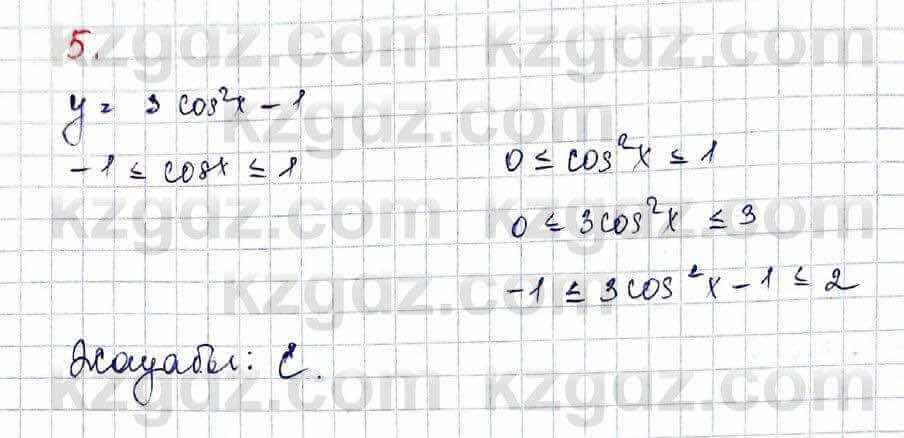 5.
y = 3 cos²x - 1
-1 ≤ cosx ≤ 1
0 ≤ cos²x ≤ 1
0 ≤ 3cos²x ≤ 3
-1 ≤ 3cos²x - 1 ≤ 2
Жауабы: C.
kzgdz.com kzgdz.com
kzgdz.com
kzgdz.com kzgdz.com
kzgdz.com
kzgdz.com kzgdz.com